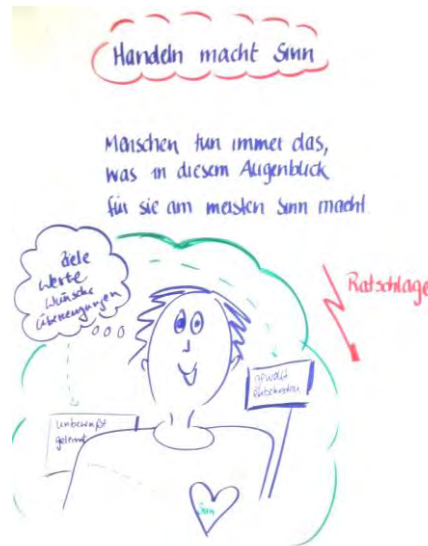 Handeln macht Sinn
Menschen tun immer das,
was in diesem Augenblick
für sie am meisten Sinn macht.
Ziele
Werte
Wünsche
Überzeugungen
Ratschläge
unbewußt
gelernt
Sinn